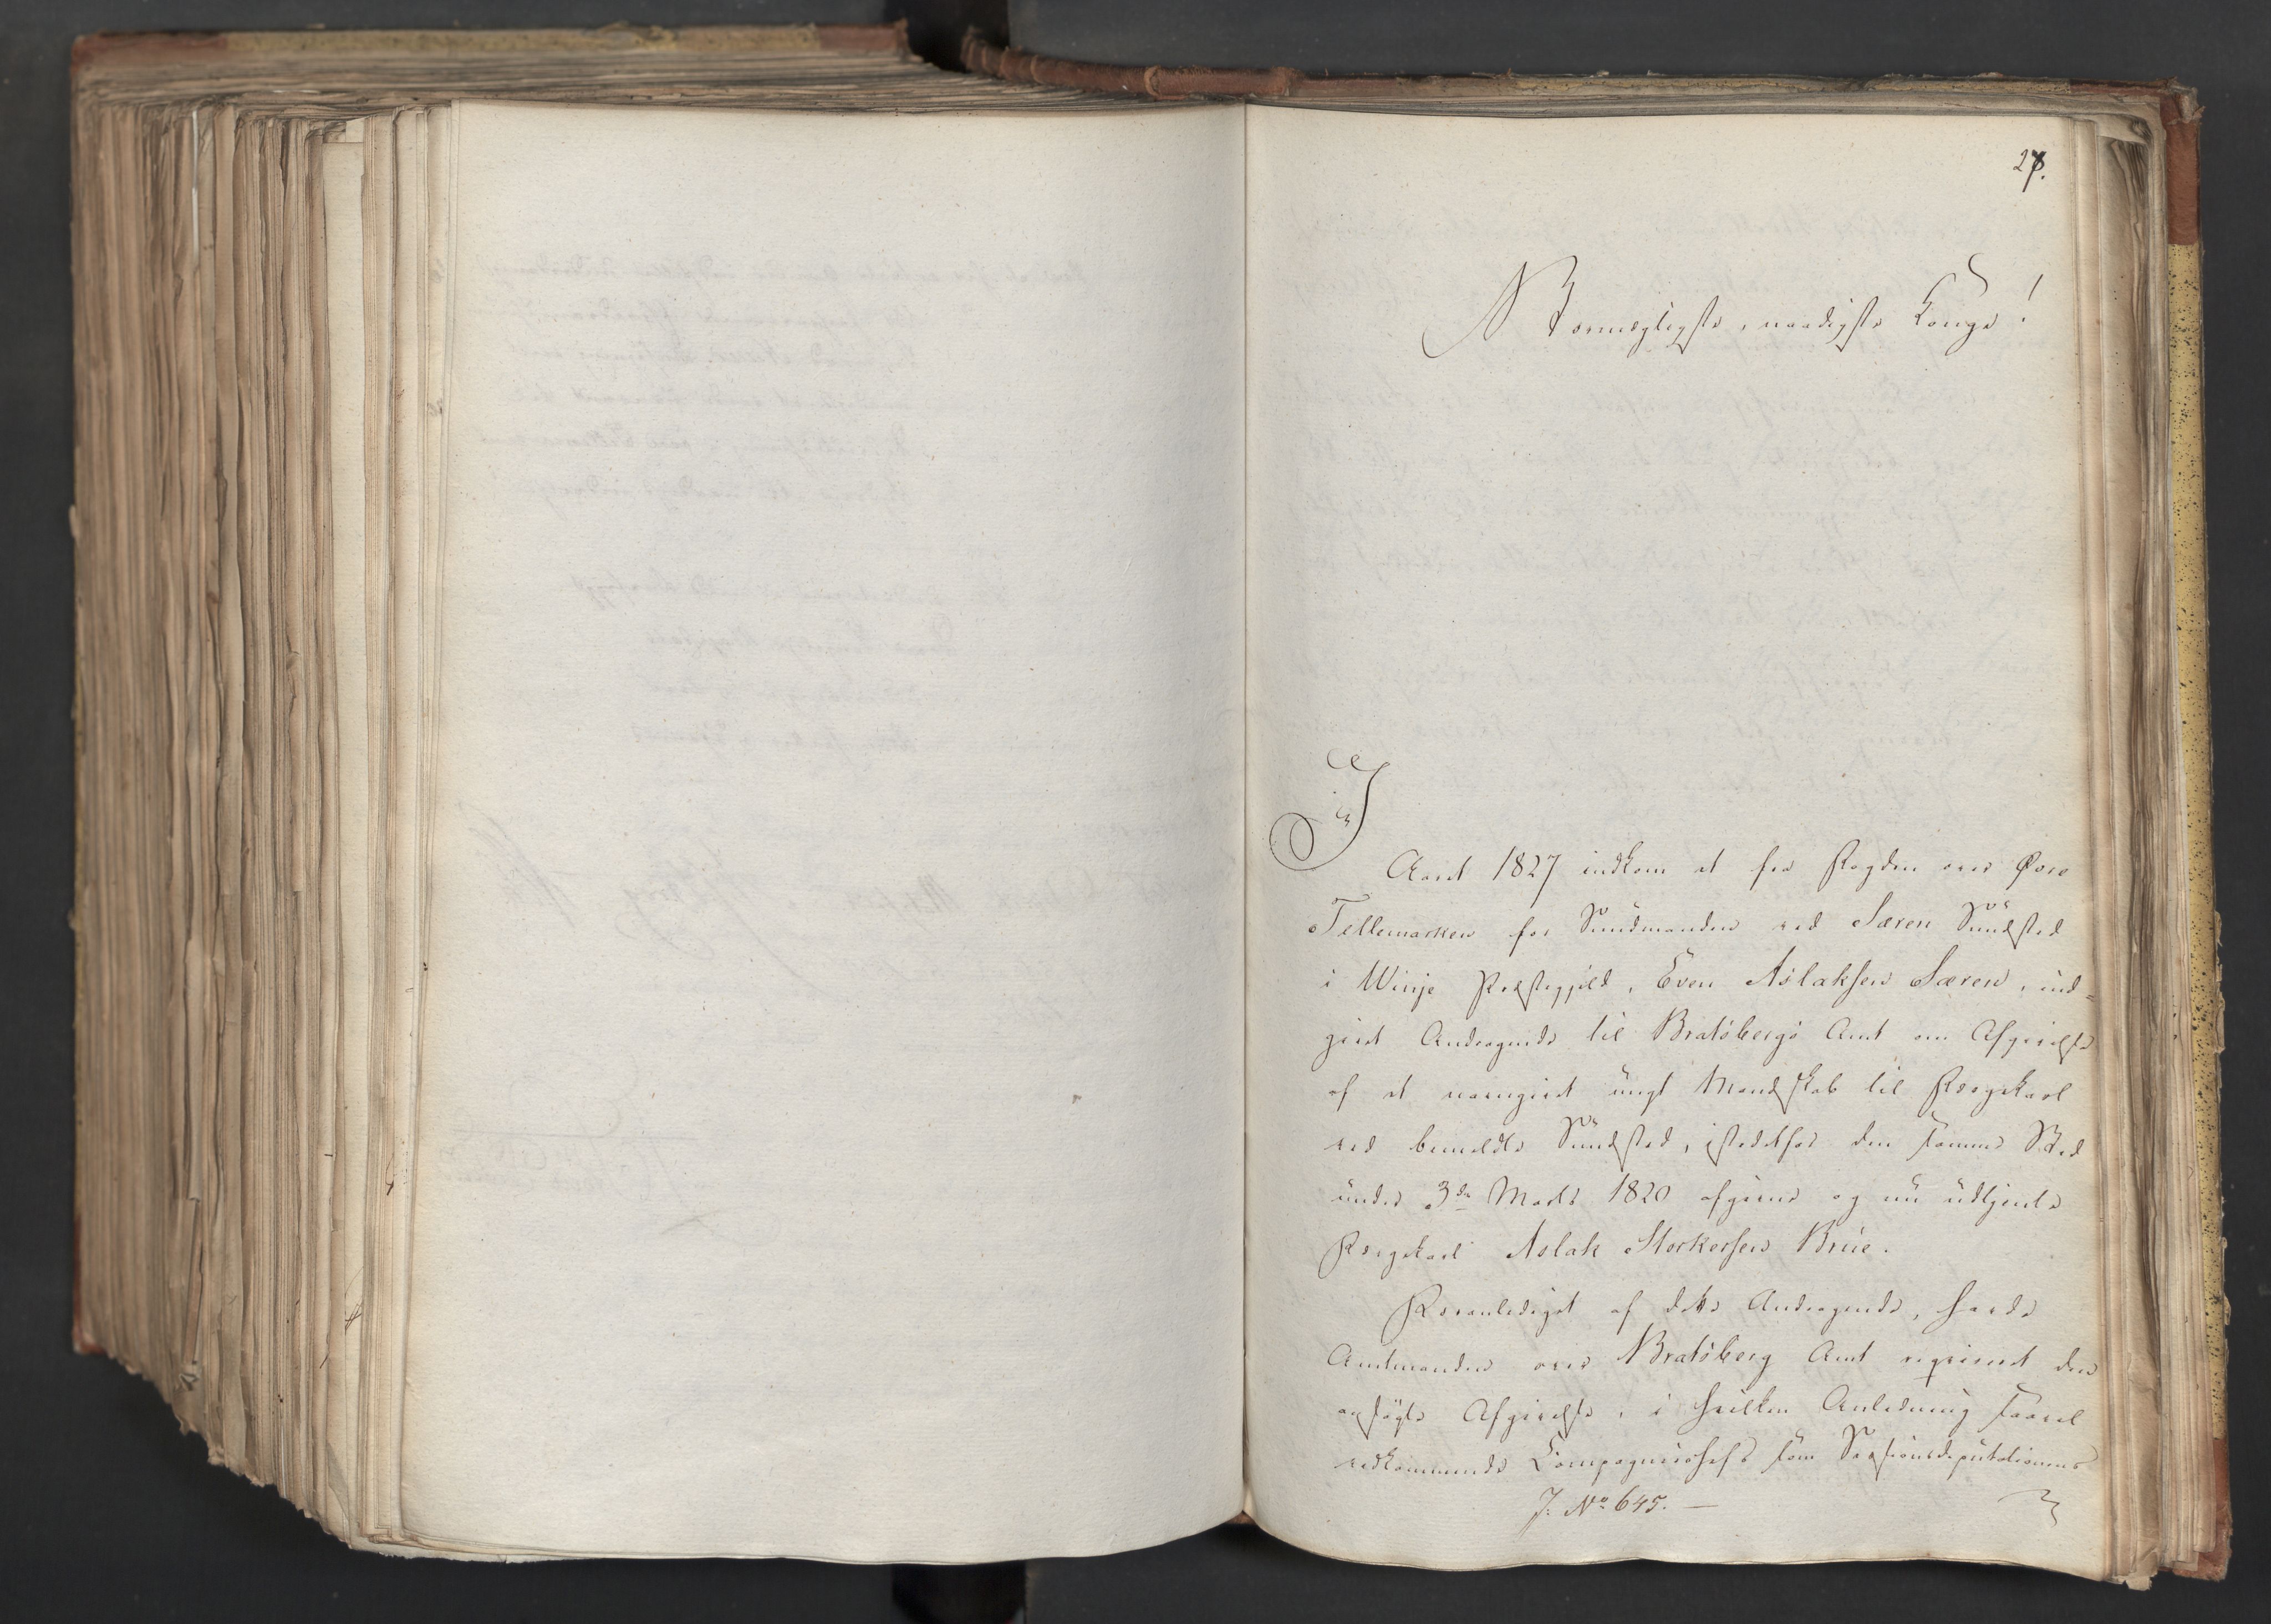 28.
Stormægtigste, naadigste Konge!
I
Aaret 1827 indkom et fra Fogden over Øvre
Tellemarken for Sundmanden ved Særen Sundsted
i Winje Præstegjeld, Even Aslaksen Særen, ind=
givet Andragende til Bratsbergs Amt om Afgivelse
af et navngivet ungt Mandskab til Færgekarl
ved bemeldte Sundsted, istedetfor den samme Sted
under 3de Marts 1820 afgivne og nu udtjente
Færgekarl Aslak Storkersen Brue.
Foranlediget af dette Andragende, havde
Amtmanden over Bratsberg Amt reqvireret den
ansøgte Afgivelse, i hvilken Anledning saavel
vedkommende Compagniechef som Sessionsdeputationens
J. No 645. —